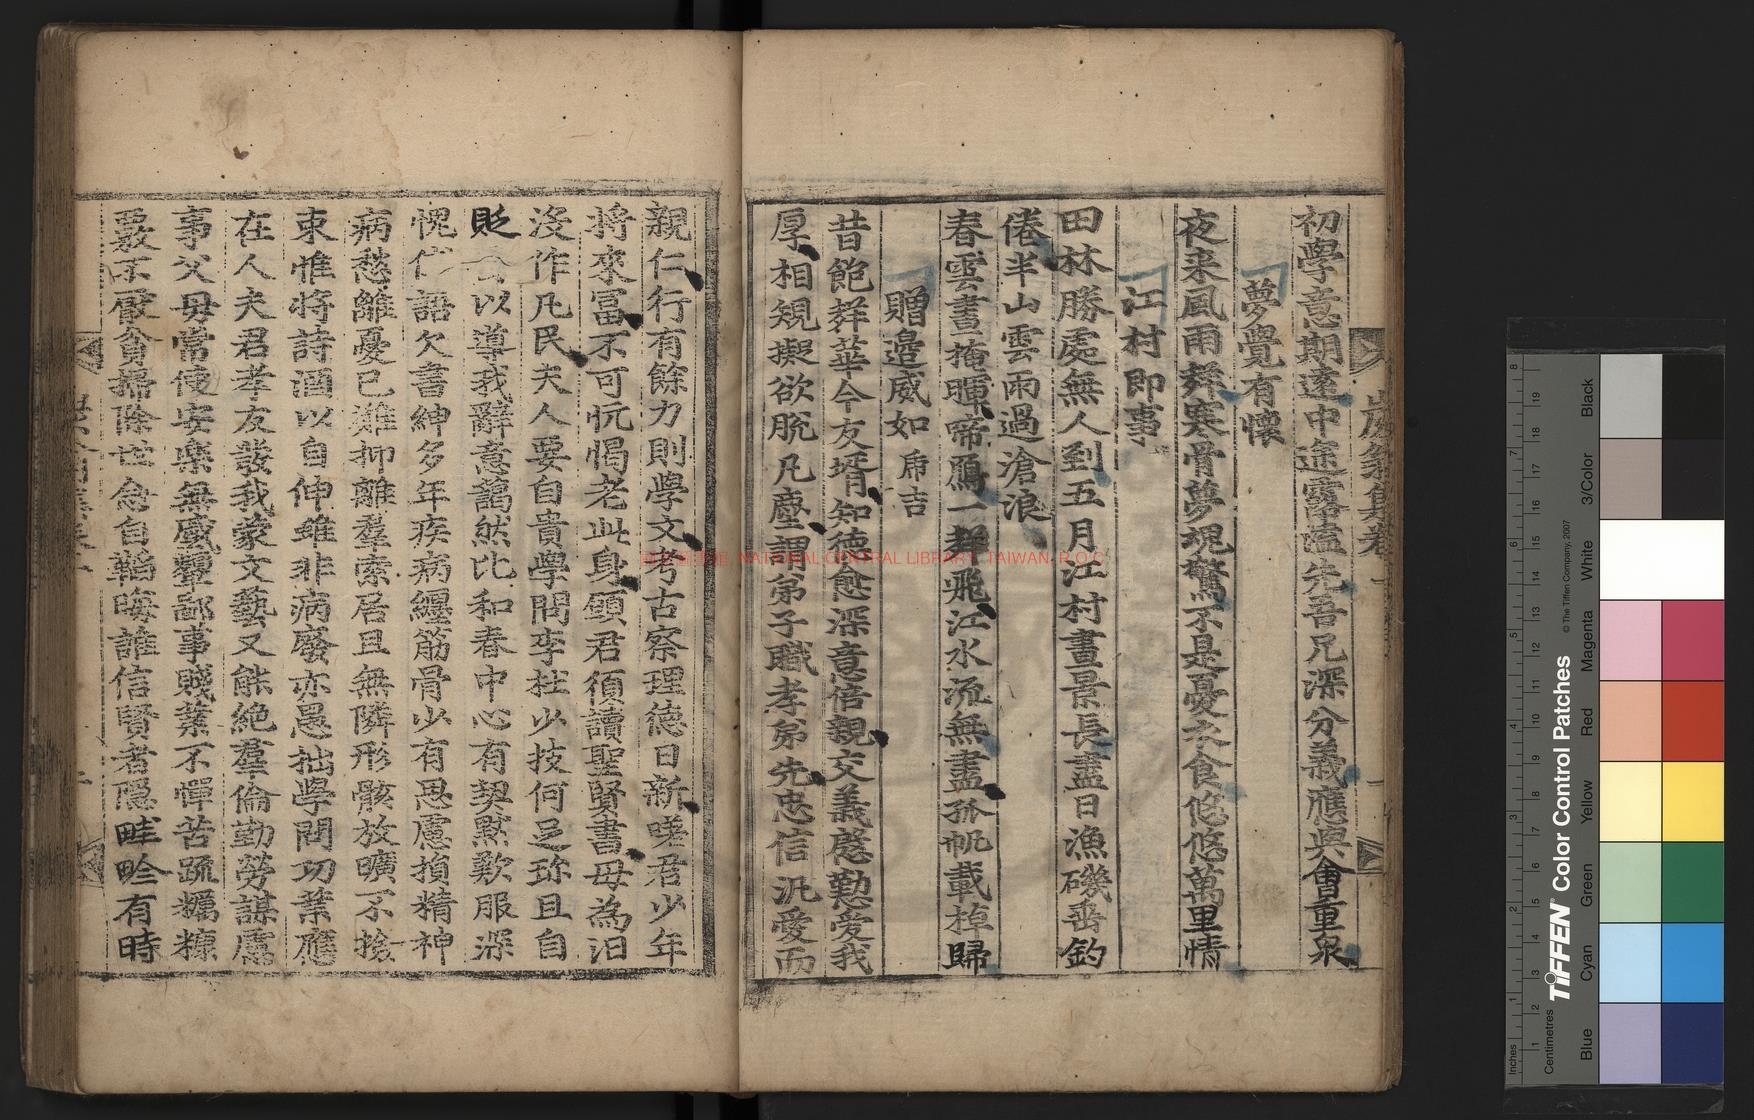 初學意期遠中途露㿽先吾兄深分義應與會重泉
夢覺有懷
夜來風雨群寒骨夢現驚不是憂衣食悠悠萬里情
江村即事
田林勝處無人到五月江村晝景長盡日漁磯垂釣
倦半山雲雨過滄浪
春雲晝掩暉啼鴈一群飛江水流無盡孤帆載棹歸
贈邉威如 㡯吉
昔飽群華今友壻知德愈深意倍親交義慇懃愛我
厚相規擬欲脫凡塵謂弟子職孝弟先忠信汎愛而
親仁行有餘力則學文考古察理德日新嗟君少年
將來冨不可忨愒老此身願君須讀聖賢書毋為汩
沒作凡民夫人要自貴學問李拙少技何足珎且自
貶 以導我辭意藹然比和春中心有契默歎服深
愧 語欠書紳多年疾病纒筋骨少有思慮損精神
病愁雖憂已難抑離羣索居且無隣形骸放曠不撿
束惟將詩酒以自伸雖非病廢亦愚拙學問功業應
在人夫君孝友發我蒙文藝又能絶羣倫勤勞謀慮
事父母常使安樂無慼顰鄙事賤業不憚苦疏糲糠
覈不厭貧掃除世念自韜晦誰信賢者隱畦畛有時
NATIONAL CENTRAL LIBRARY, TAIWAN, R.O.C
TIFFEN® Color Control Patches
© The Tiffen Company, 2007
Centimetres
Inches
Blue Cyan Green Yellow Red Magenta White 3/Color Black